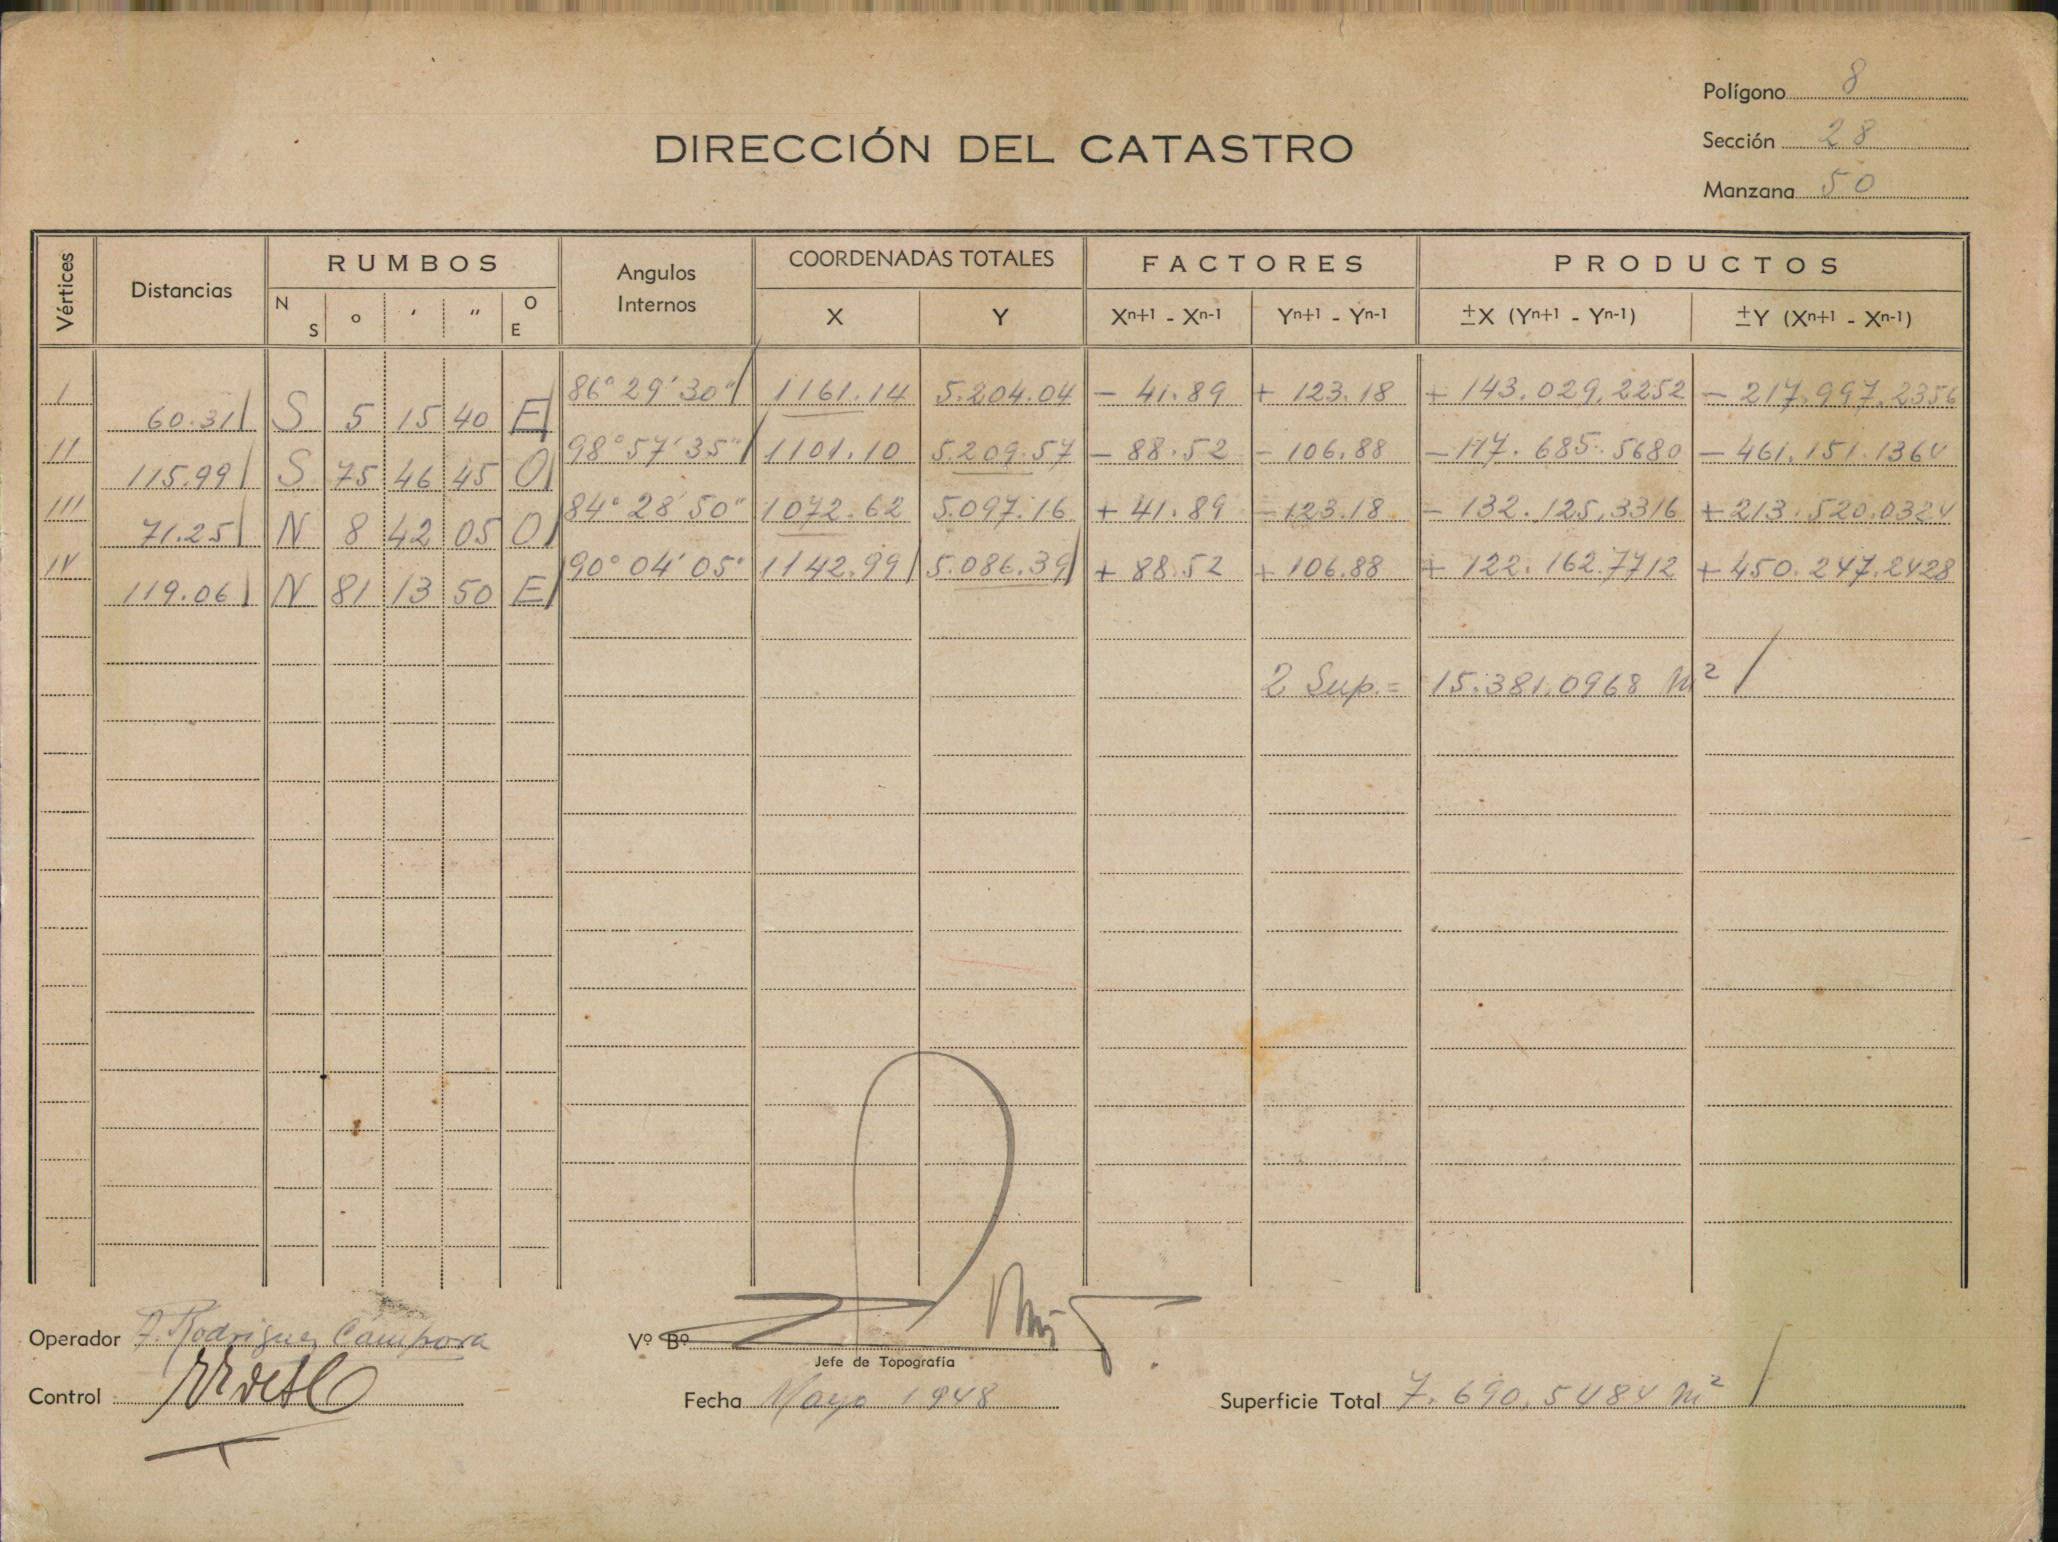 Polígono 8
DIRECCIÓN DEL CATASTRO
Sección 28
Manzana 50
Vértices Distancias RUMBOS N S ° ' " O E Angulos Internos COORDENADAS TOTALES X Y FACTORES Xn+1 - Xn-1 Yn+1 - Yn-1 PRODUCTOS ±X (Yn+1 - Yn-1) ±Y (Xn+1 - Xn-1)
I 86° 29' 30" 1161.14 5.204.04 - 41.89 + 123.18 + 143.029,2252 - 217.997.2356
60.31 S 5 15 40 E
II 98° 57' 35" 1101.10 5.209.57 - 88.52 - 106.88 - 117.685.5680 - 461.151.1364
115.99 S 75 46 45 O
III 84° 28' 50" 1072.62 5.097.16 + 41.89 - 123.18 - 132.125,3316 + 213.520.0324
71.25 N 8 42 05 O
IV 90° 04' 05" 1142.99 5.086.39 + 88.52 + 106.88 + 122.162.7712 + 450.247.2428
119.06 N 81 13 50 E
2 Sup. = 15.381,0968 m²
Operador A. Rodriguez Campora
Vº Bº
Jefe de Topografía
Control
Fecha Mayo 1948
Superficie Total 7.690,5484 m²